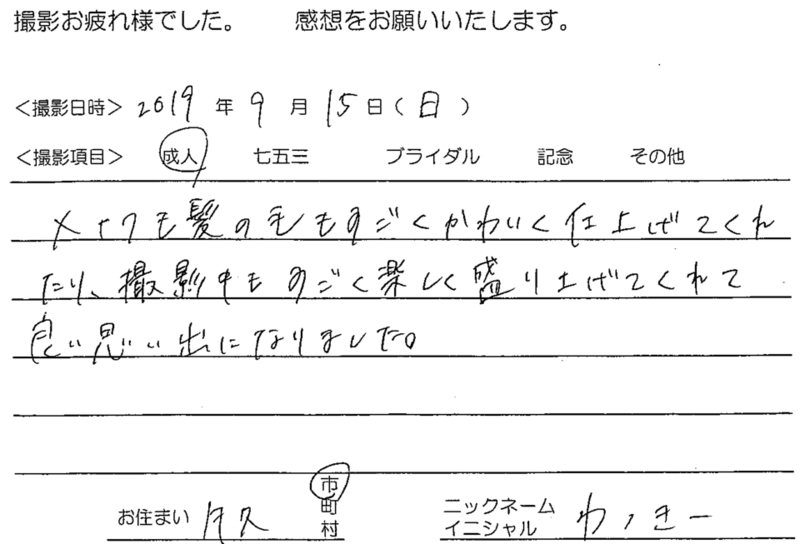 撮影お疲れ様でした。 感想をお願いいたします。
<撮影日時> 2019 年 9 月 15 日(日)
<撮影項目> 成人 七五三 ブライダル 記念 その他
メイクも髪の毛もすごくかわいく仕上げてくれ
たり、撮影中もすごく楽しく盛り上げてくれて
良い思い出になりました。
お住まい 市町村
ニックネーム
イニシャル わっきー